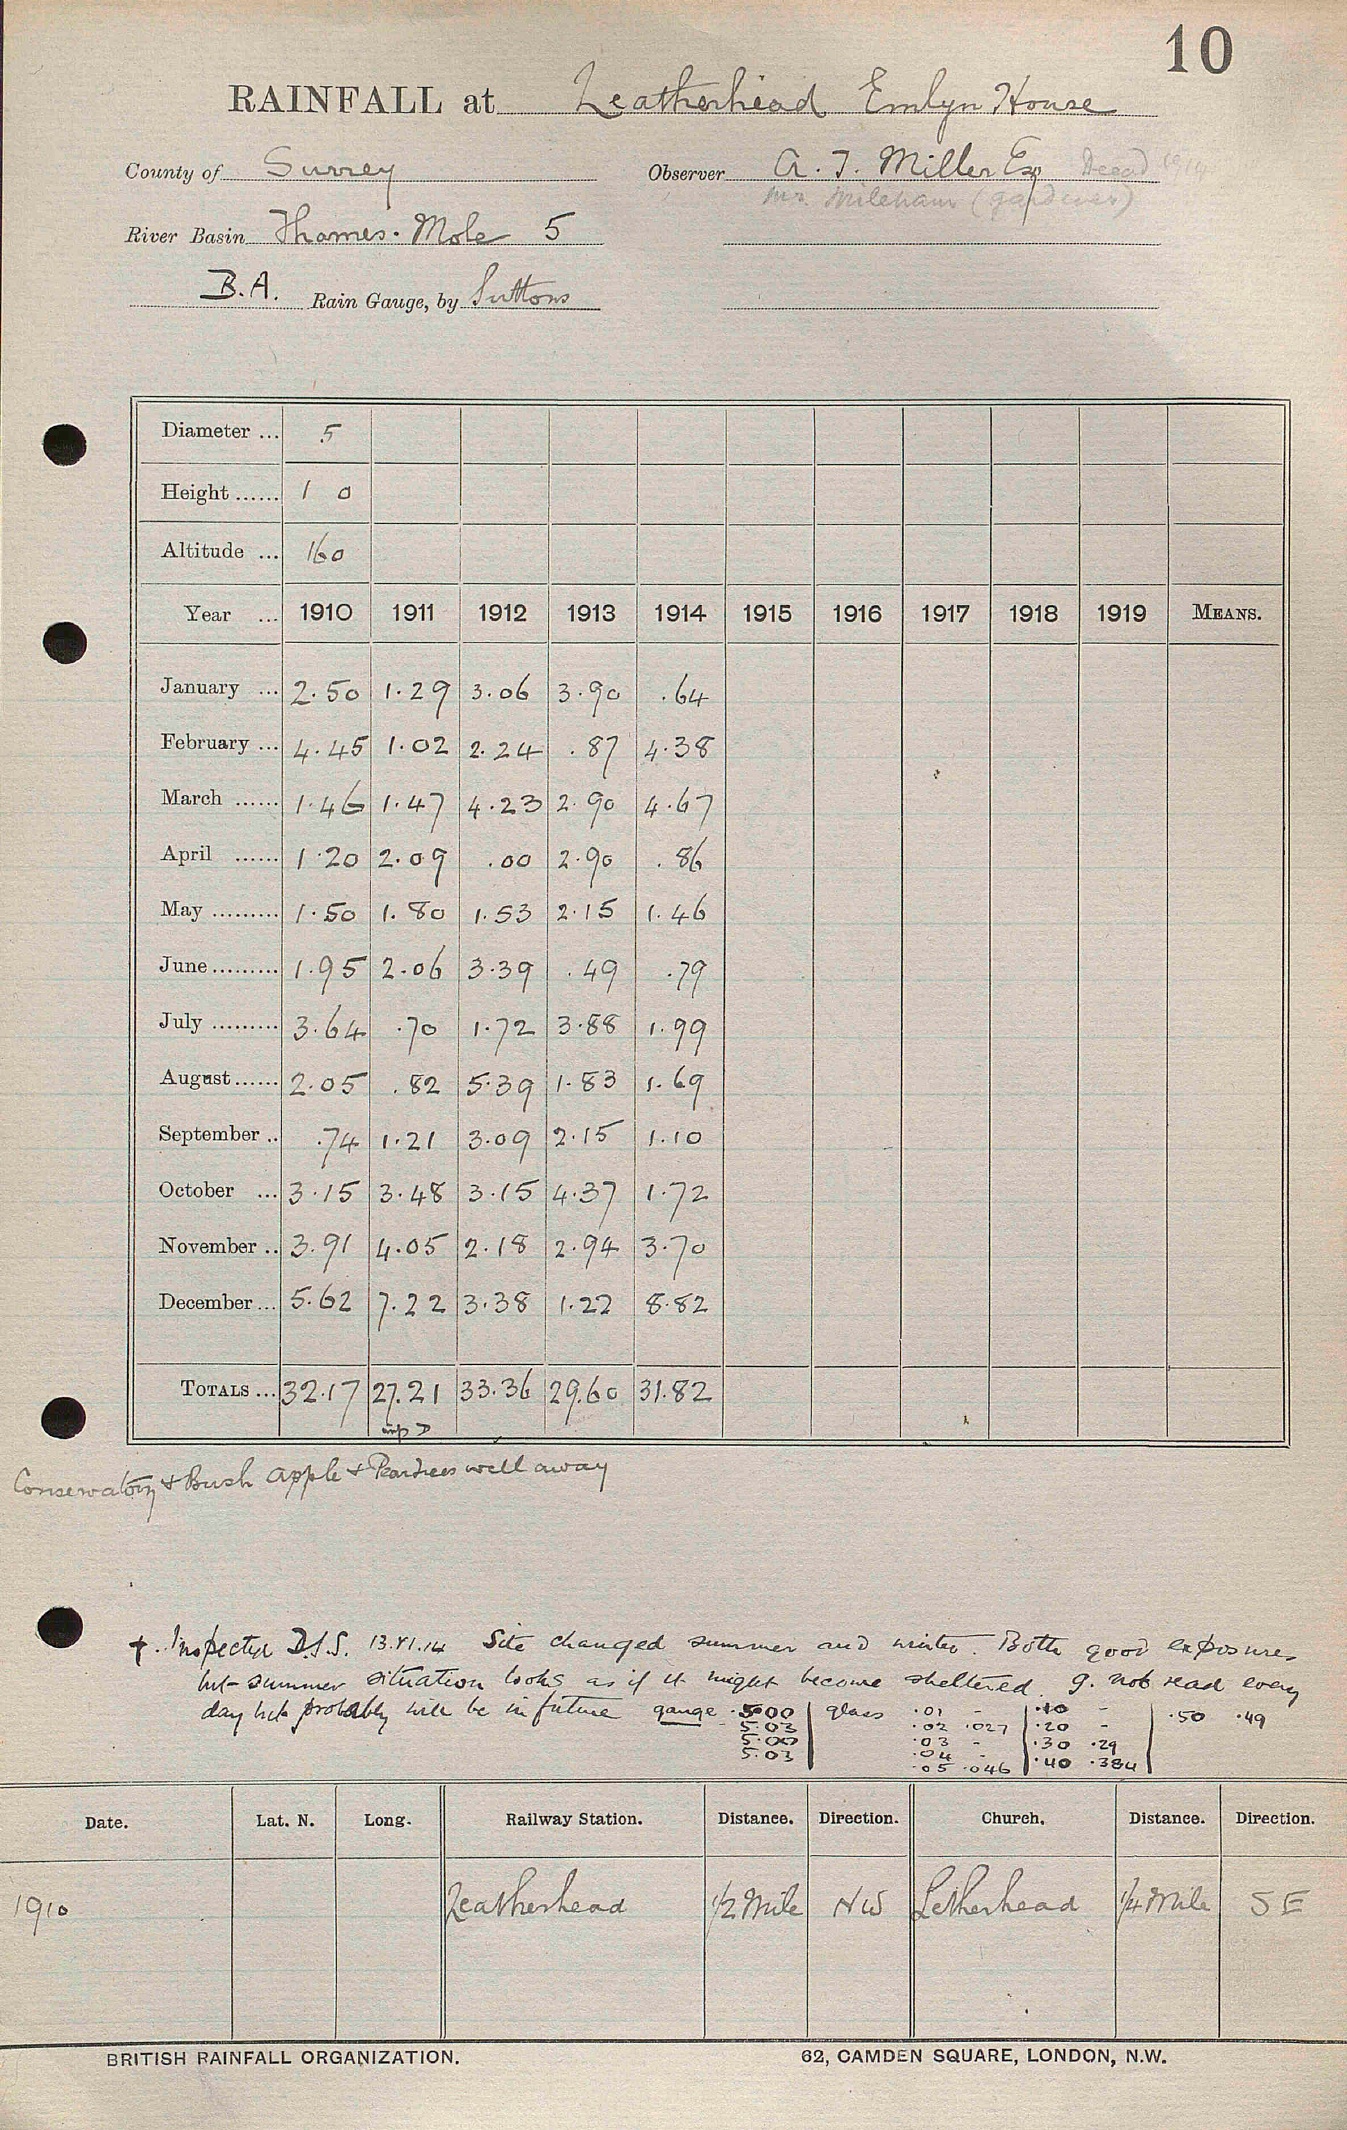 10
RAINFALL at Leatherhead Emlyn House
County of Surrey Observer A. T. Miller Esq Decd 1914
Mr. Mileham (gardener)
River Basin Thames. Mole 5
B.A. Rain Gauge, by Suttons
Diameter ... 5
Height ...... 1 0
Altitude ... 160
Year ... 1910 1911 1912 1913 1914 1915 1916 1917 1918 1919 MEANS.
January ... 2.50 1.29 3.06 3.90 .64
February ... 4.45 1.02 2.24 .87 4.38
March ...... 1.46 1.47 4.23 2.90 4.67
April ...... 1.20 2.09 .00 2.90 .86
May ......... 1.50 1.80 1.53 2.15 1.46
June ......... 1.95 2.06 3.39 .49 .79
July ......... 3.64 .70 1.72 3.88 1.99
August ...... 2.05 .82 5.39 1.83 1.69
September .. .74 1.21 3.09 2.15 1.10
October ... 3.15 3.48 3.15 4.37 1.72
November .. 3.91 4.05 2.18 2.94 3.70
December ... 5.62 7.22 3.38 1.22 8.82
TOTALS ... 32.17 27.21 33.36 29.60 31.82
Conservatory & Bush Apple & Peartrees well away
† Inspected D.S.S. 13.VI.14 Site changed summer and winter. Both good exposures
but summer situation looks as if it might become sheltered. g. not read every
day but probably will be in future gauge 5.00 glass .01 - .10 - .50 .49
5.03 .02 .027 .20 -
5.00 .03 - .30 .29
5.03 .04 - .40 .384
.05 .046
Date. Lat. N. Long. Railway Station. Distance. Direction. Church. Distance. Direction.
1910 Leatherhead 1/2 Mile NW Letherhead 1/4 Mile SE
BRITISH RAINFALL ORGANIZATION. 62, CAMDEN SQUARE, LONDON, N.W.